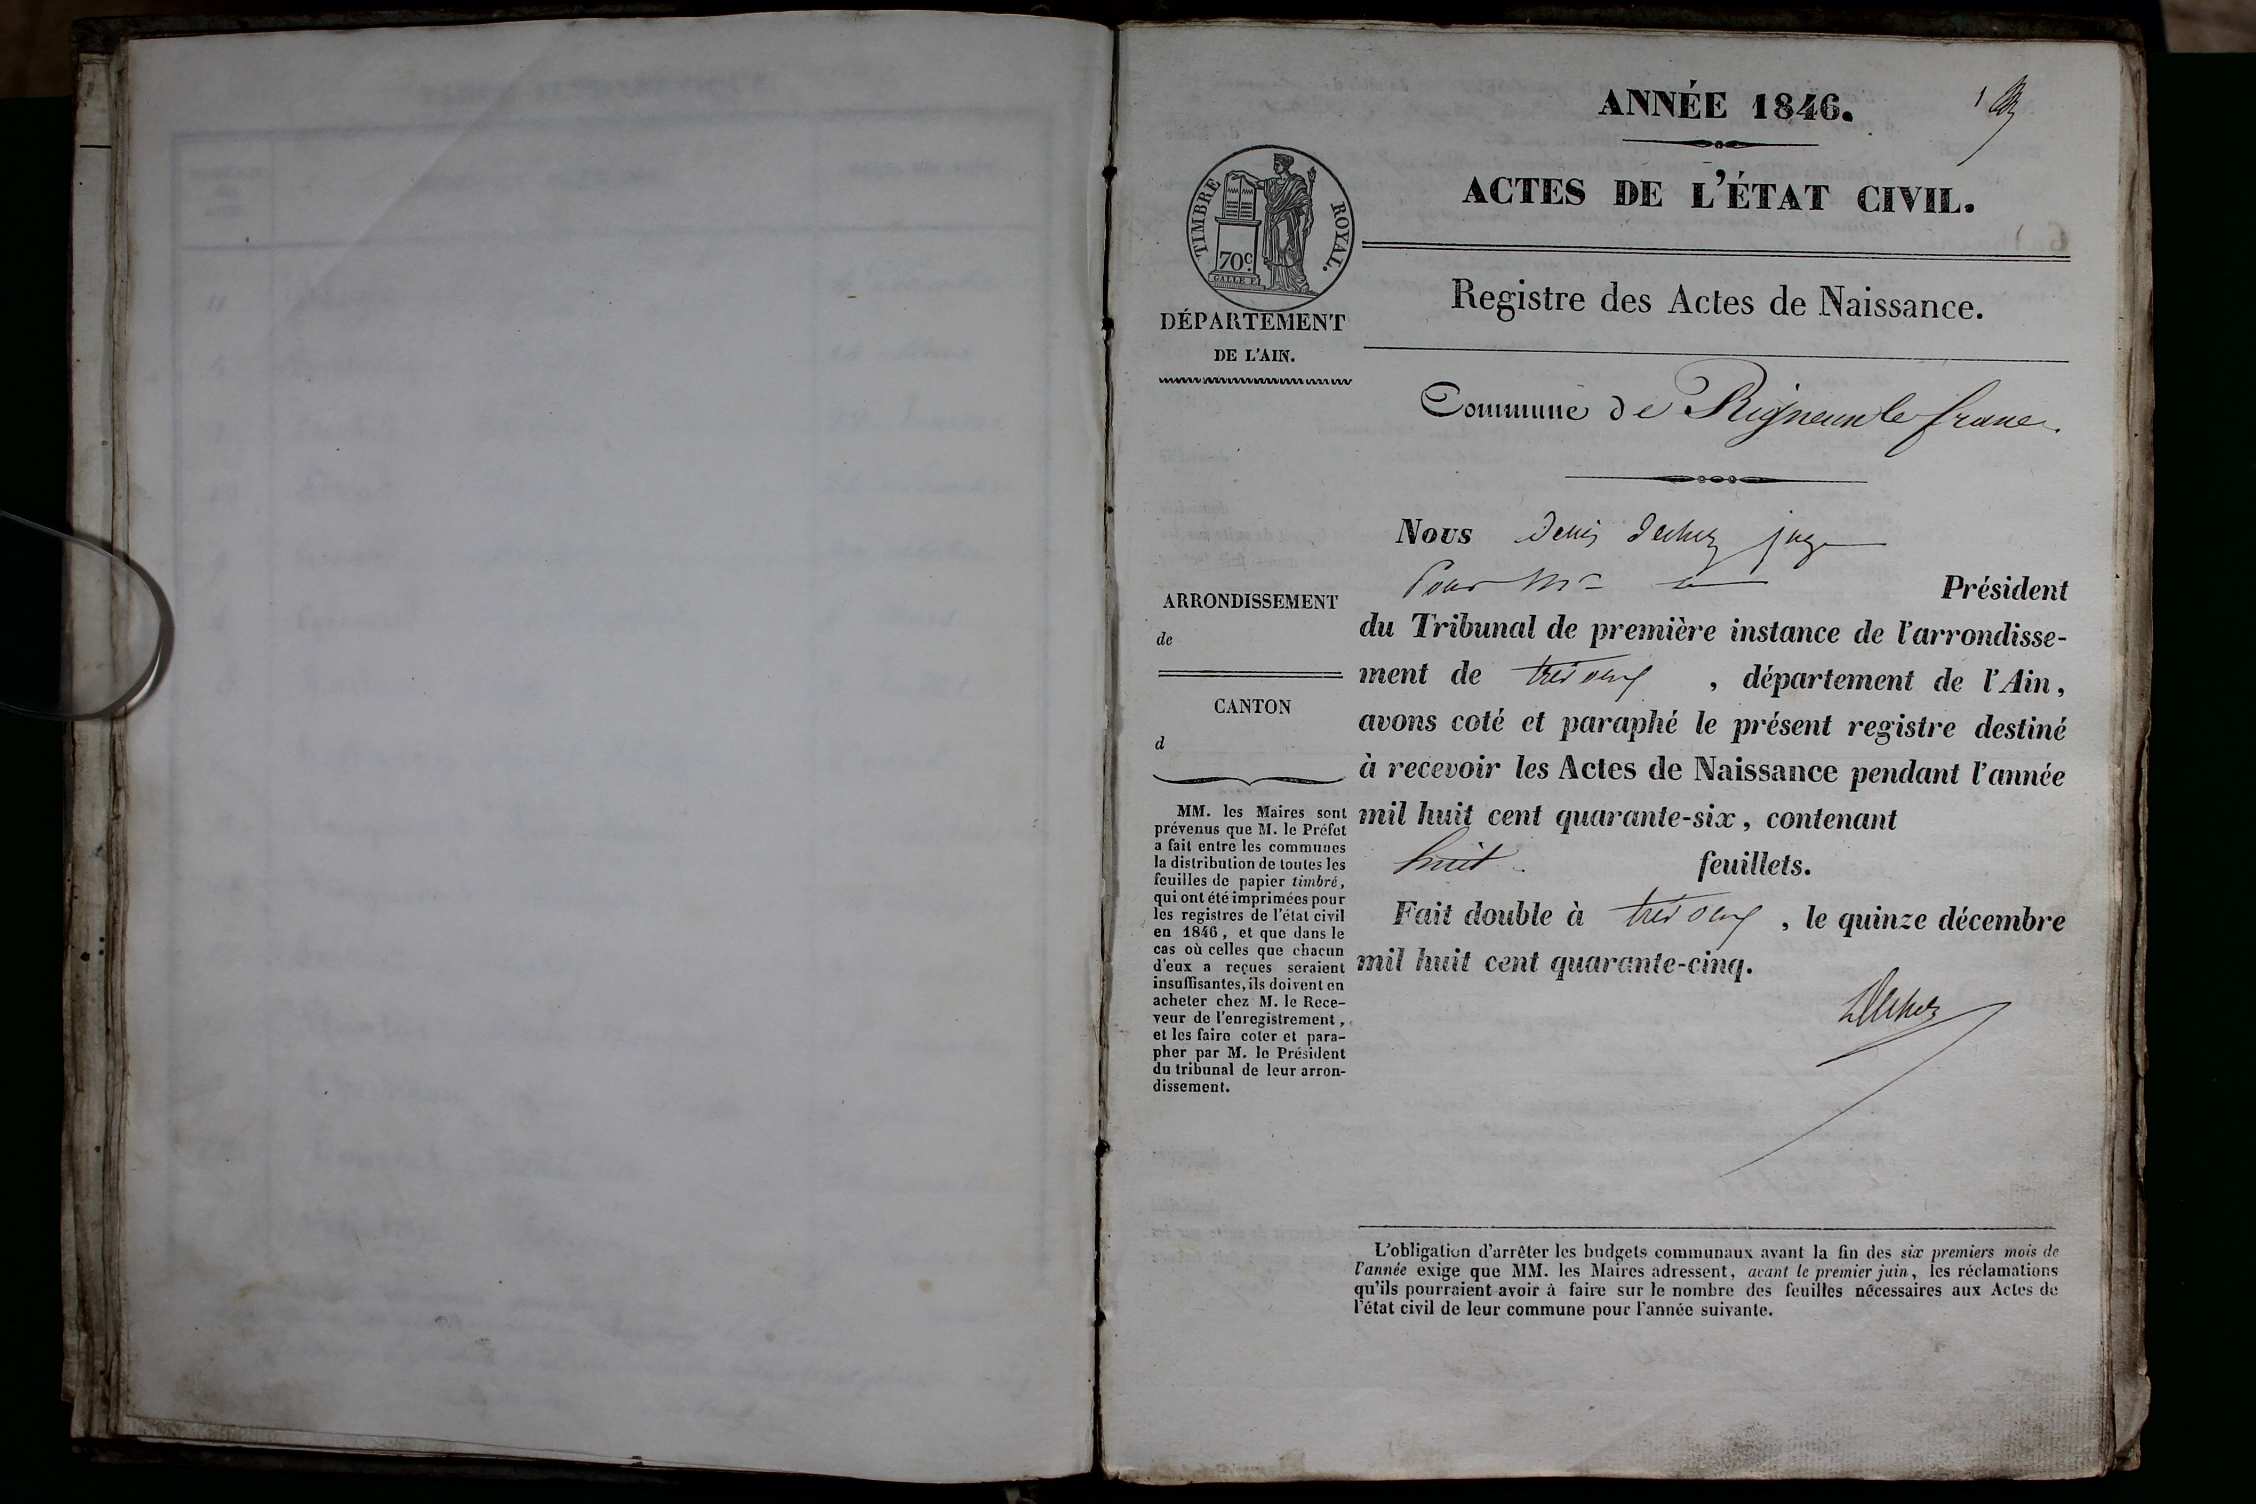 ANNÉE 1846.
1
ACTES DE L'ÉTAT CIVIL.
TIMBRE ROYAL.
70c.
GALLE F.
DÉPARTEMENT
DE L'AIN.
Registre des Actes de Naissance.
Commune de Rigneux le franc.
Nous Denis Dechez juge
Pour Mr Président
du Tribunal de première instance de l'arrondisse-
ment de trévoux, département de l'Ain,
avons coté et paraphé le présent registre destiné
à recevoir les Actes de Naissance pendant l'année
mil huit cent quarante-six, contenant
huit feuillets.
Fait double à trévoux, le quinze décembre
mil huit cent quarante-cinq.
Dechez
ARRONDISSEMENT
de
CANTON
d
MM. les Maires sont
prévenus que M. le Préfet
a fait entre les communes
la distribution de toutes les
feuilles de papier timbré,
qui ont été imprimées pour
les registres de l'état civil
en 1846, et que dans le
cas où celles que chacun
d'eux a reçues seraient
insuffisantes, ils doivent en
acheter chez M. le Rece-
veur de l'enregistrement,
et les faire coter et para-
pher par M. le Président
du tribunal de leur arron-
dissement.
L'obligation d'arrêter les budgets communaux avant la fin des six premiers mois de
l'année exige que MM. les Maires adressent, avant le premier juin, les réclamations
qu'ils pourraient avoir à faire sur le nombre des feuilles nécessaires aux Actes de
l'état civil de leur commune pour l'année suivante.